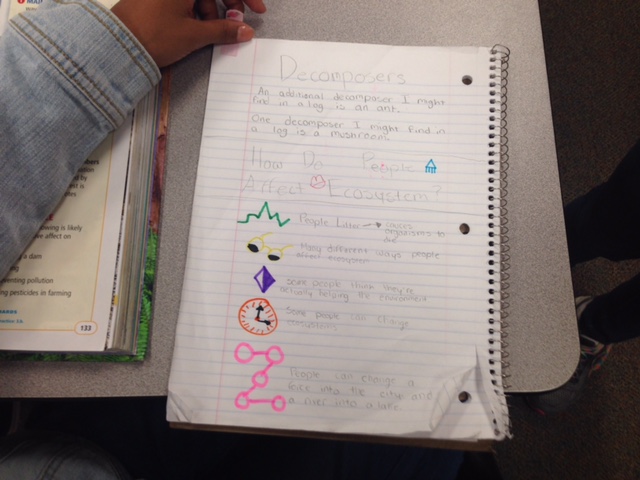 Decomposers
An additional decomposer I might
find in a log is an ant.
One decomposer I might find in
a log is a mushroom.
How Do People
Affect Ecosystem?
People Litter → causes
organisms to
die
Many different ways people
affect ecosystem
Some people think they're
actually helping the environment
Some people can change
ecosystems
People can change a
into the city and
a river into a lake.
owing is likely
we affect on
a dam
enting pollution
ng pesticides in farming
133